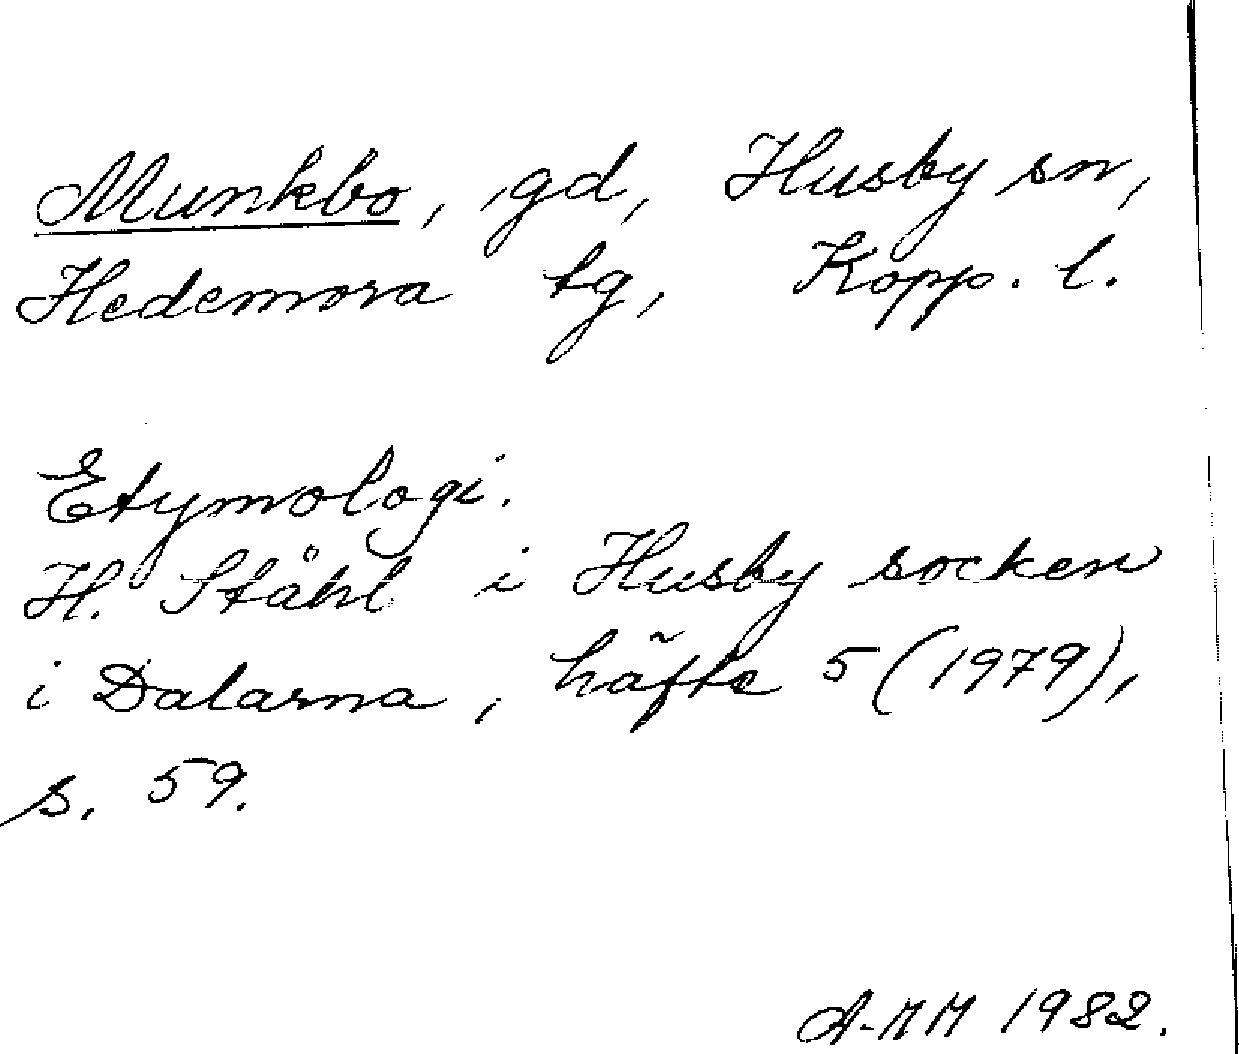 Munkbo, gd, Husby sn,
Hedemora tg, Kopp. l.
Etymologi.
H. Ståhl i Husby socken
i Dalarna, häfte 5 (1979),
s. 59.
A-MM 1982.